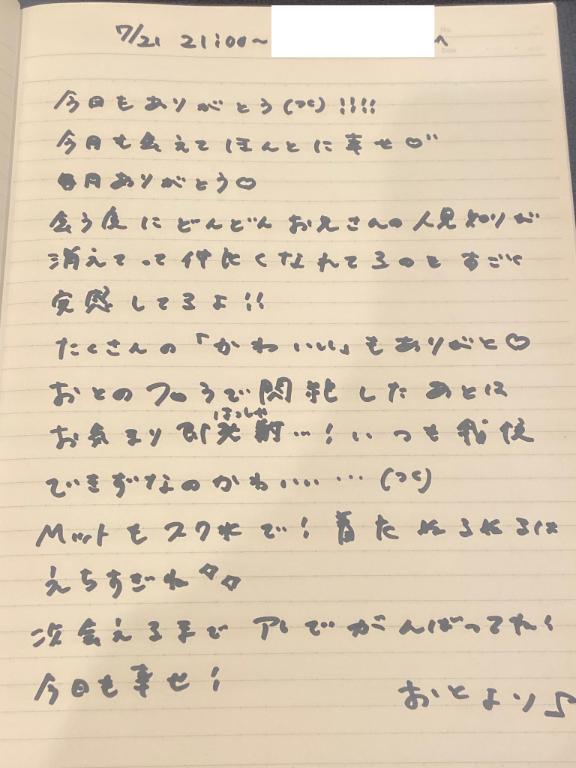 7/21 21:00~ へ
今日もありがとう(つc)!!!!
今月も会えてほんとに幸せ♡"
毎月ありがとう♡
会う度にどんどんお兄さんの人見知りが
消えてって仲良くなれてるのもすごく
実感してるよ!!
たくさんの「かわいい」もありがと♡
おとのフロうで悶乾したあとは
お気まり即発射…!いつも我慢
ほっしゃ
できずなのかわいい……(つc)
Mットもスク水で!着たぬるぬるは
えちすぎね
次会えるまでアレでがんばってね!
今日も幸せ!
おとより♪